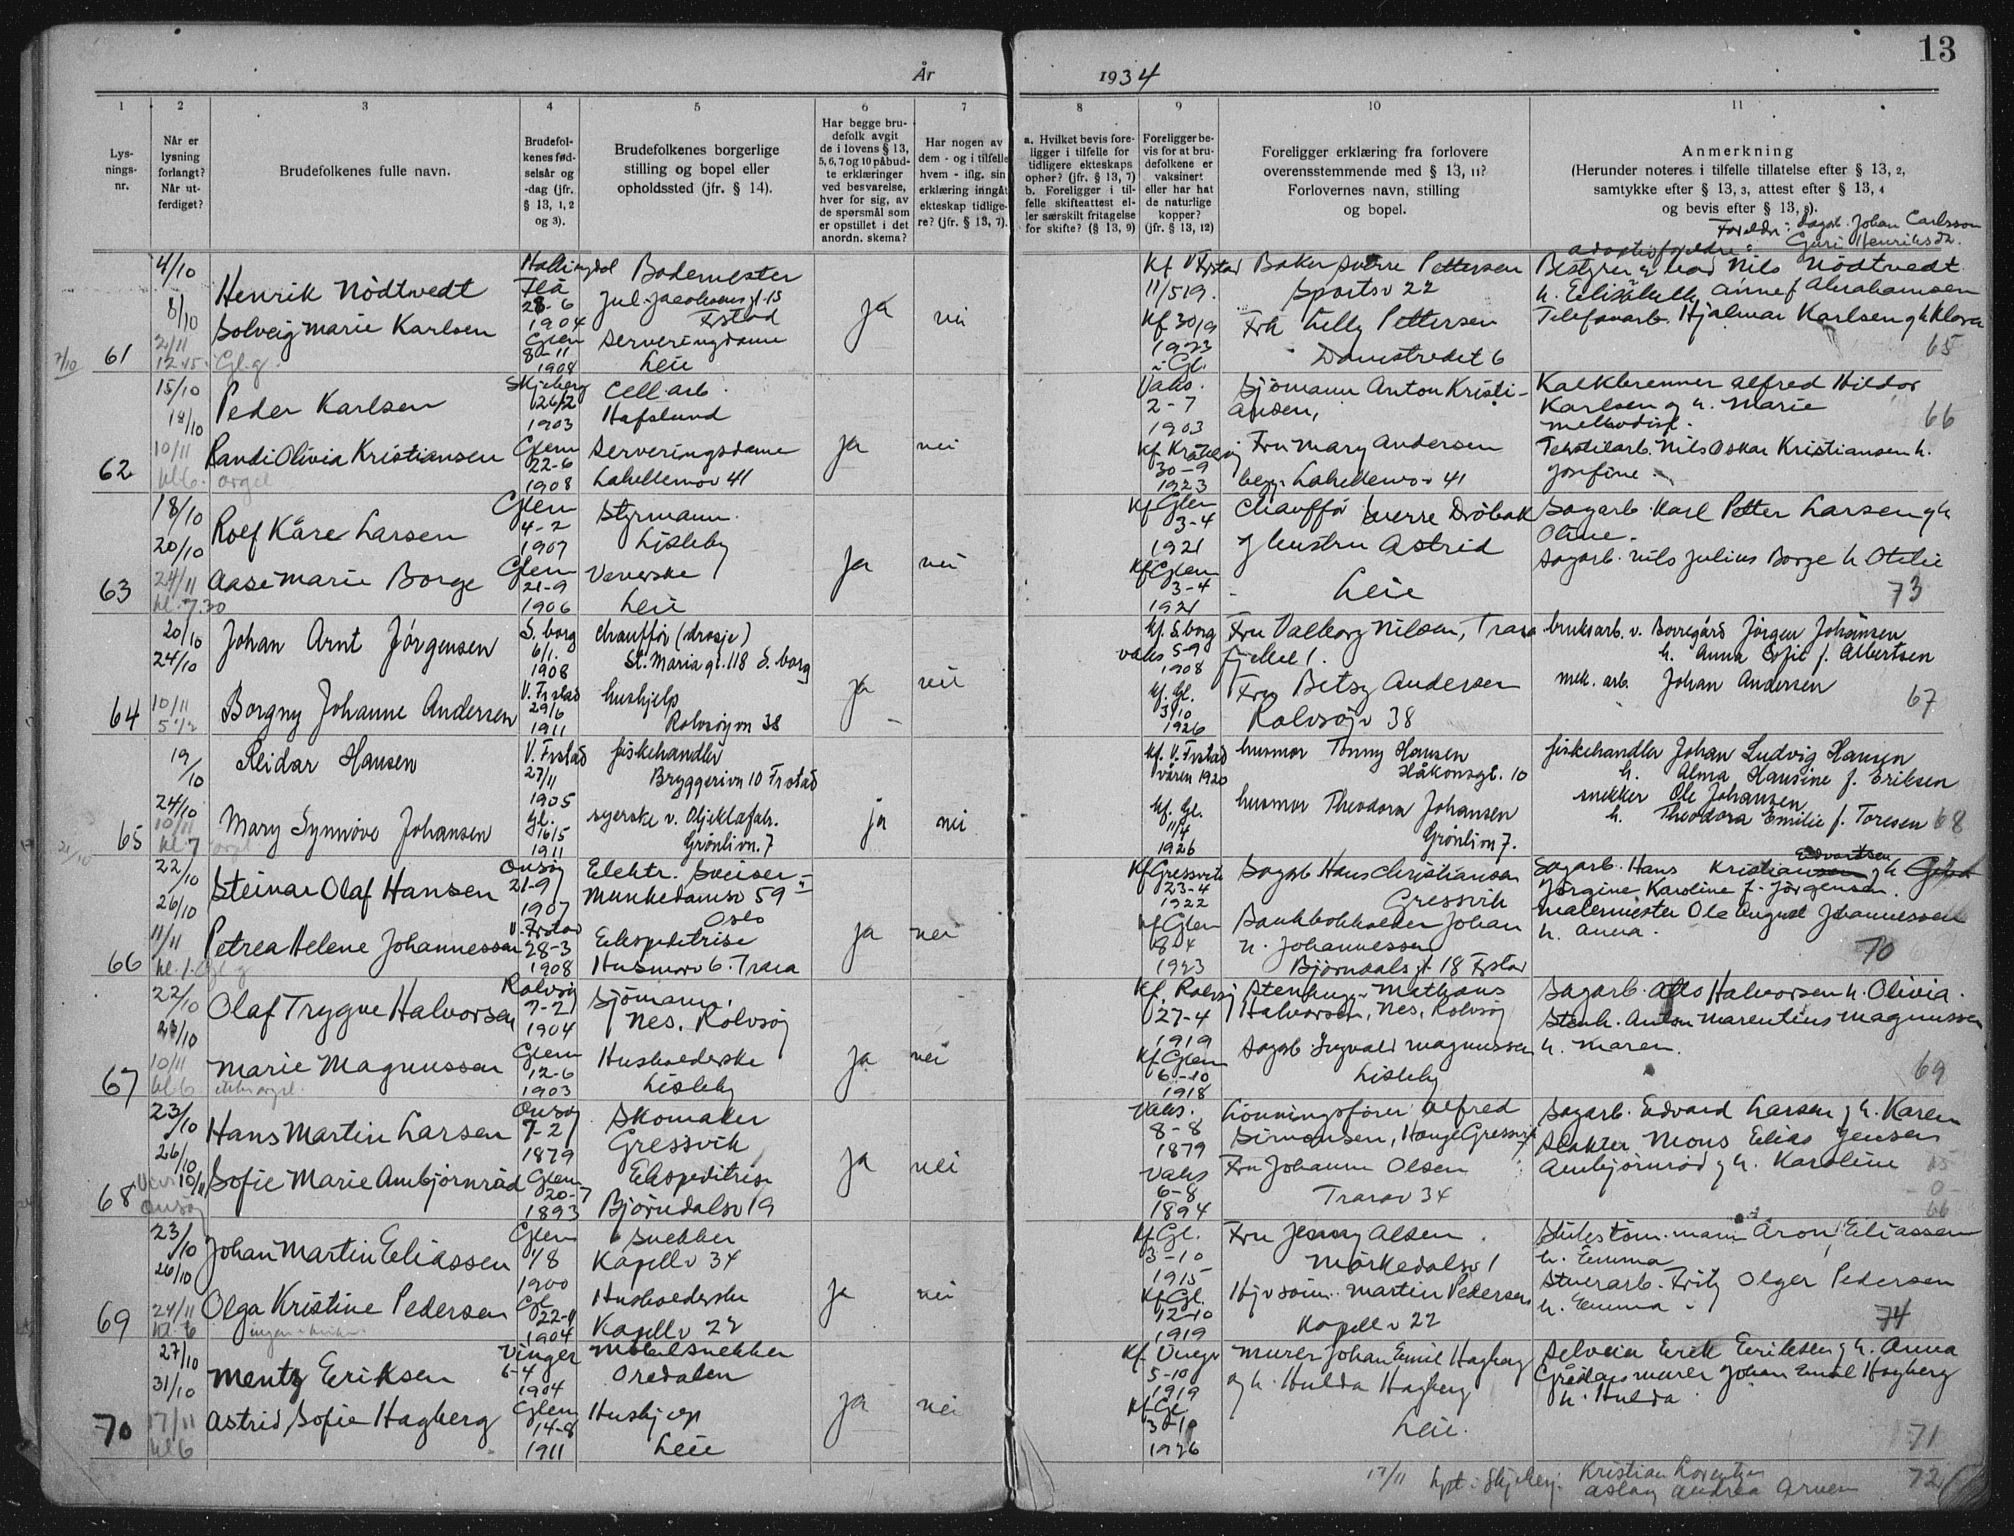 13
År 1934
1 2 3 4 5 6 7 8 9 10 11
Lys-
nings-
nr.
Når er
lysning
forlangt?
Når ut-
ferdiget?
Brudefolkenes fulle navn.
Brudefol-
kenes fød-
selsår og
-dag (jfr.
§ 13, 1, 2
og 3).
Brudefolkenes borgerlige
stilling og bopel eller
opholdssted (jfr. § 14).
Har begge bru-
defolk avgit
de i lovens § 13,
5, 6, 7 og 10 påbud-
te erklæringer
ved besvarelse,
hver for sig, av
de spørsmål som
er opstillet i det
anordn. skema?
Har nogen av
dem - og i tilfelle
hvem - iflg. sin
erklæring inngått
ekteskap tidlige-
re? (jfr. § 13, 7).
a. Hvilket bevis fore-
ligger i tilfelle for
tidligere ekteskaps
ophør? (jfr. § 13, 7)
b. Foreligger i til-
felle skifteattest el-
ler særskilt fritagelse
for skifte? (§ 13, 9)
Foreligger be-
vis for at bru-
defolkene er
vaksinert
eller har hat
de naturlige
kopper?
(jfr. § 13, 12)
Foreligger erklæring fra forlovere
overensstemmende med § 13, 11?
Forlovernes navn, stilling
og bopel.
Anmerkning
(Herunder noteres i tilfelle tillatelse efter § 13, 2,
samtykke efter § 13, 3, attest efter § 13, 4
og bevis efter § 13, 8).
Foreldre: dagarb. Johan Carlsson
Guri Henriksdtr.
adoptivforeldre:
61
4/10
8/10
2/11
12.45. Gl. g.
Henrik Nödtvedt
Solveig Marie Karlsen
Hallingdal
Flå
28-6
1904
Glem
8-11
1908
Bademester
Jul. Jacobsens gt. 15
Frstad
Serveringsdame
Leie
ja
nei
Kf Frstad
11/5 19.
Kf 30/9
1923
i Gl.
Baker Sverre Pettersen
Sportsv 22
Fru Lilly Pettersen
Damstredet 6
Bestyrer av bad Nils Nödtvedt
h. Elisabeth Anne f Abrahamsen
Telefonarb. Hjalmar Karlsen g h Klara
65
62
15/10
18/10
10/11
kl 6. orgel
Peder Karlsen
Randi Olivia Kristiansen
Skjeberg
26/2
1903
Glem
22-6
1908
Cell. arb.
Hafslund
Serveringsdame
Lahellemov 41
ja
nei
Vaks.
2-7
1903
Kf Kråkerøy
30-9
1923
Sjömann Anton Kristi-
ansen,
Fru Mary Andersen
begge Lahellemov 41
Kalkbrenner Alfred Hildor
Karlsen og h. Marie
methodist.
Tekstilarb. Nils Oskar Kristiansen h.
Josefine
66
63
18/10
20/10
24/11
kl. 7.30
Rolf Kåre Larsen
Aase Marie Borge
Glem
4-2
1907
Glem
21-9
1906
Styrmann.
Lisleby
Veverske
Leie
ja
nei
Kf Glem
3-4
1921
Kf Glem
3-4
1921
Chauffør Sverre Dröbak
g hustru Astrid
Leie
Sagarb. Karl Petter Larsen g h
Oline.
Sagarb. Nils Julius Borge h Otilie
73
64
20/10
24/10
10/11
5 1/2
Johan Arnt Jörgensen
Borgny Johanne Andersen
S. borg
6/1.
1908
V. Frstad
29/6
1911
chauffør (drosje)
St. Maria gt. 118 S. borg
hushjelp
Rolvsøyvn 38
ja
nei
kf. S. borg
vaks 5-9
1908
kf. Gl.
3/10
1926
Fru Valborg Nilsen, Trara
fjellet 1.
Fru Betsy Andersen
Rolvsøyv 38
bruksarb. v. Borregård Jörgen Johansen
h. Anna Sofie f. Albertsen
mek. arb. Johan Andersen
67
65
19/10
24/10
10/11
kl 7 orgel
Reidar Hansen
Mary Synnöve Johansen
V. Frstad
27/11
1905
Gl.
16/5
1911
fiskehandler
Bryggerivn 10 Frstad
syerske v. Oljeklæfabr.
Grönlivn. 7
ja
nei
kf. V. Frstad
våren 1920
kf. Gl.
11/4
1926
husmor Tonny Hansen
Håkonsgt. 10
husmor Theodora Johansen
Grönlivn 7.
fiskehandler Johan Ludvig Hansen
h. Alma Hansine f. Eriksen
snekker Ole Johansen
h. Theodora Emilie f. Toresen
68
66
22/10
26/10
11/11
kl. 1. Gl g
Steinar Olaf Hansen
Petrea Helene Johannessen
Onsøy
21-9
1907
V. Frstad
28-3
1908
Elektr. Sveiser
Munkedamsv 59
Oslo
Ekspeditrise
Husmorv 6. Trara
ja
nei
Kf Gressvik
23-4
1922
Kf Glem
8-4
1923
Sagarb Hans Christiansen
Gressvik
Bankbokholder Johan
h. Johannessen
Bjørndals gt 18 Frstad
Edvartsen
Sagarb. Hans Kristiansen g h
Jørgine Karoline f. Jørgensen.
Malermester Ole August Johannessen
h. Anna.
70
67
22/10
10/11
kl 6 ikke orgel.
Olaf Trygve Halvorsen
Marie Magnussen
Rolvsøy
7-2
1904
Glem
12-6
1903
Sjömann.
Nes. Rolvsøy
Husholderske
Lisleby
ja
nei
Kf. Rolvsøy
27-4
1919
Kf Glem
6-10
1918
Stenhugger Mathæus
Halvorsen, Nes, Rolvsøy
Sagarb. Ingvald Magnussen
Lisleby
Sagarb. Otto Halvorsen h. Olivia.
Stenh. Anton Marentius Magnussen
h. Maren.
69
68
23/10
26/10
10/11
Onsøy
Hans Martin Larsen
Sofie Marie Ambjörnröd
Onsøy
7-2
1879
Glem
20-7
1893
Skomaker
Gressvik
Ekspeditrise
Björndalsv 19
ja
nei
Vaks.
8-8
1879
Vaks
6-8
1894
Lönningsfører Alfred
Simensen, Hauge Gressvik
Fru Johanne Olsen
Trarav 34
Sagarb. Edvard Larsen g h. Karen
Slakter Mons Elias Jensen
Ambjörnröd g h. Karoline
69
23/10
26/10
24/11
kl. 6
Johan Martin Eliassen
Olga Kristine Pedersen
Glem
1/8
1900
Gl.
22-11
1904
Snekker
Kapellv 34
Husholderske
Kapellv 22
ja
nei
Kf Gl.
3-10
1915
Kf Gl.
12-10
1919
Fru Jenny Olsen
Mørkedalsv 1
Martin Pedersen
Kapellv 22
Aron Eliassen
h. Emma
Stuerarb. Fritz Olger Pedersen
h. Emma
74
70
27/10
31/10
17/11
kl 6
Mentz Eriksen
Astrid Sofie Hagberg
Vinger
6-4
1904
Glem
14-8
1911
Møbelsnekker
Oredalen
Hushjelp
Leie
ja
nei
Kf Vinger
5-10
1919
Kf Gl.
3-10
1926
Murer Johan Emil Hagberg
og h. Hulda Hagberg
Leie.
Selveier Erik Eriksen g h. Anna
Murer Johan Emil Hagberg
h. Hulda
71
17/11 lyst i Skjeberg. Kristian Lorentzen
Aslaug Andrea Arnesen
72